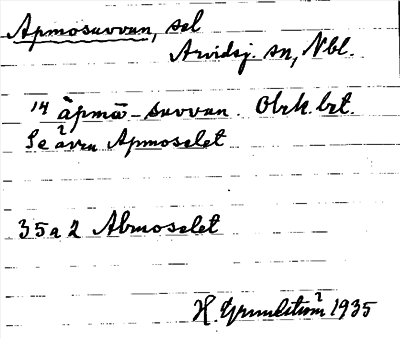 Apmosuvvan, sel
Arvidsj. sn, Nbl.
14 äpmō-suvvan. Obek. bet.
Se även Apmoselet
35 a 2 Abmoselet
H. Grundström 1935